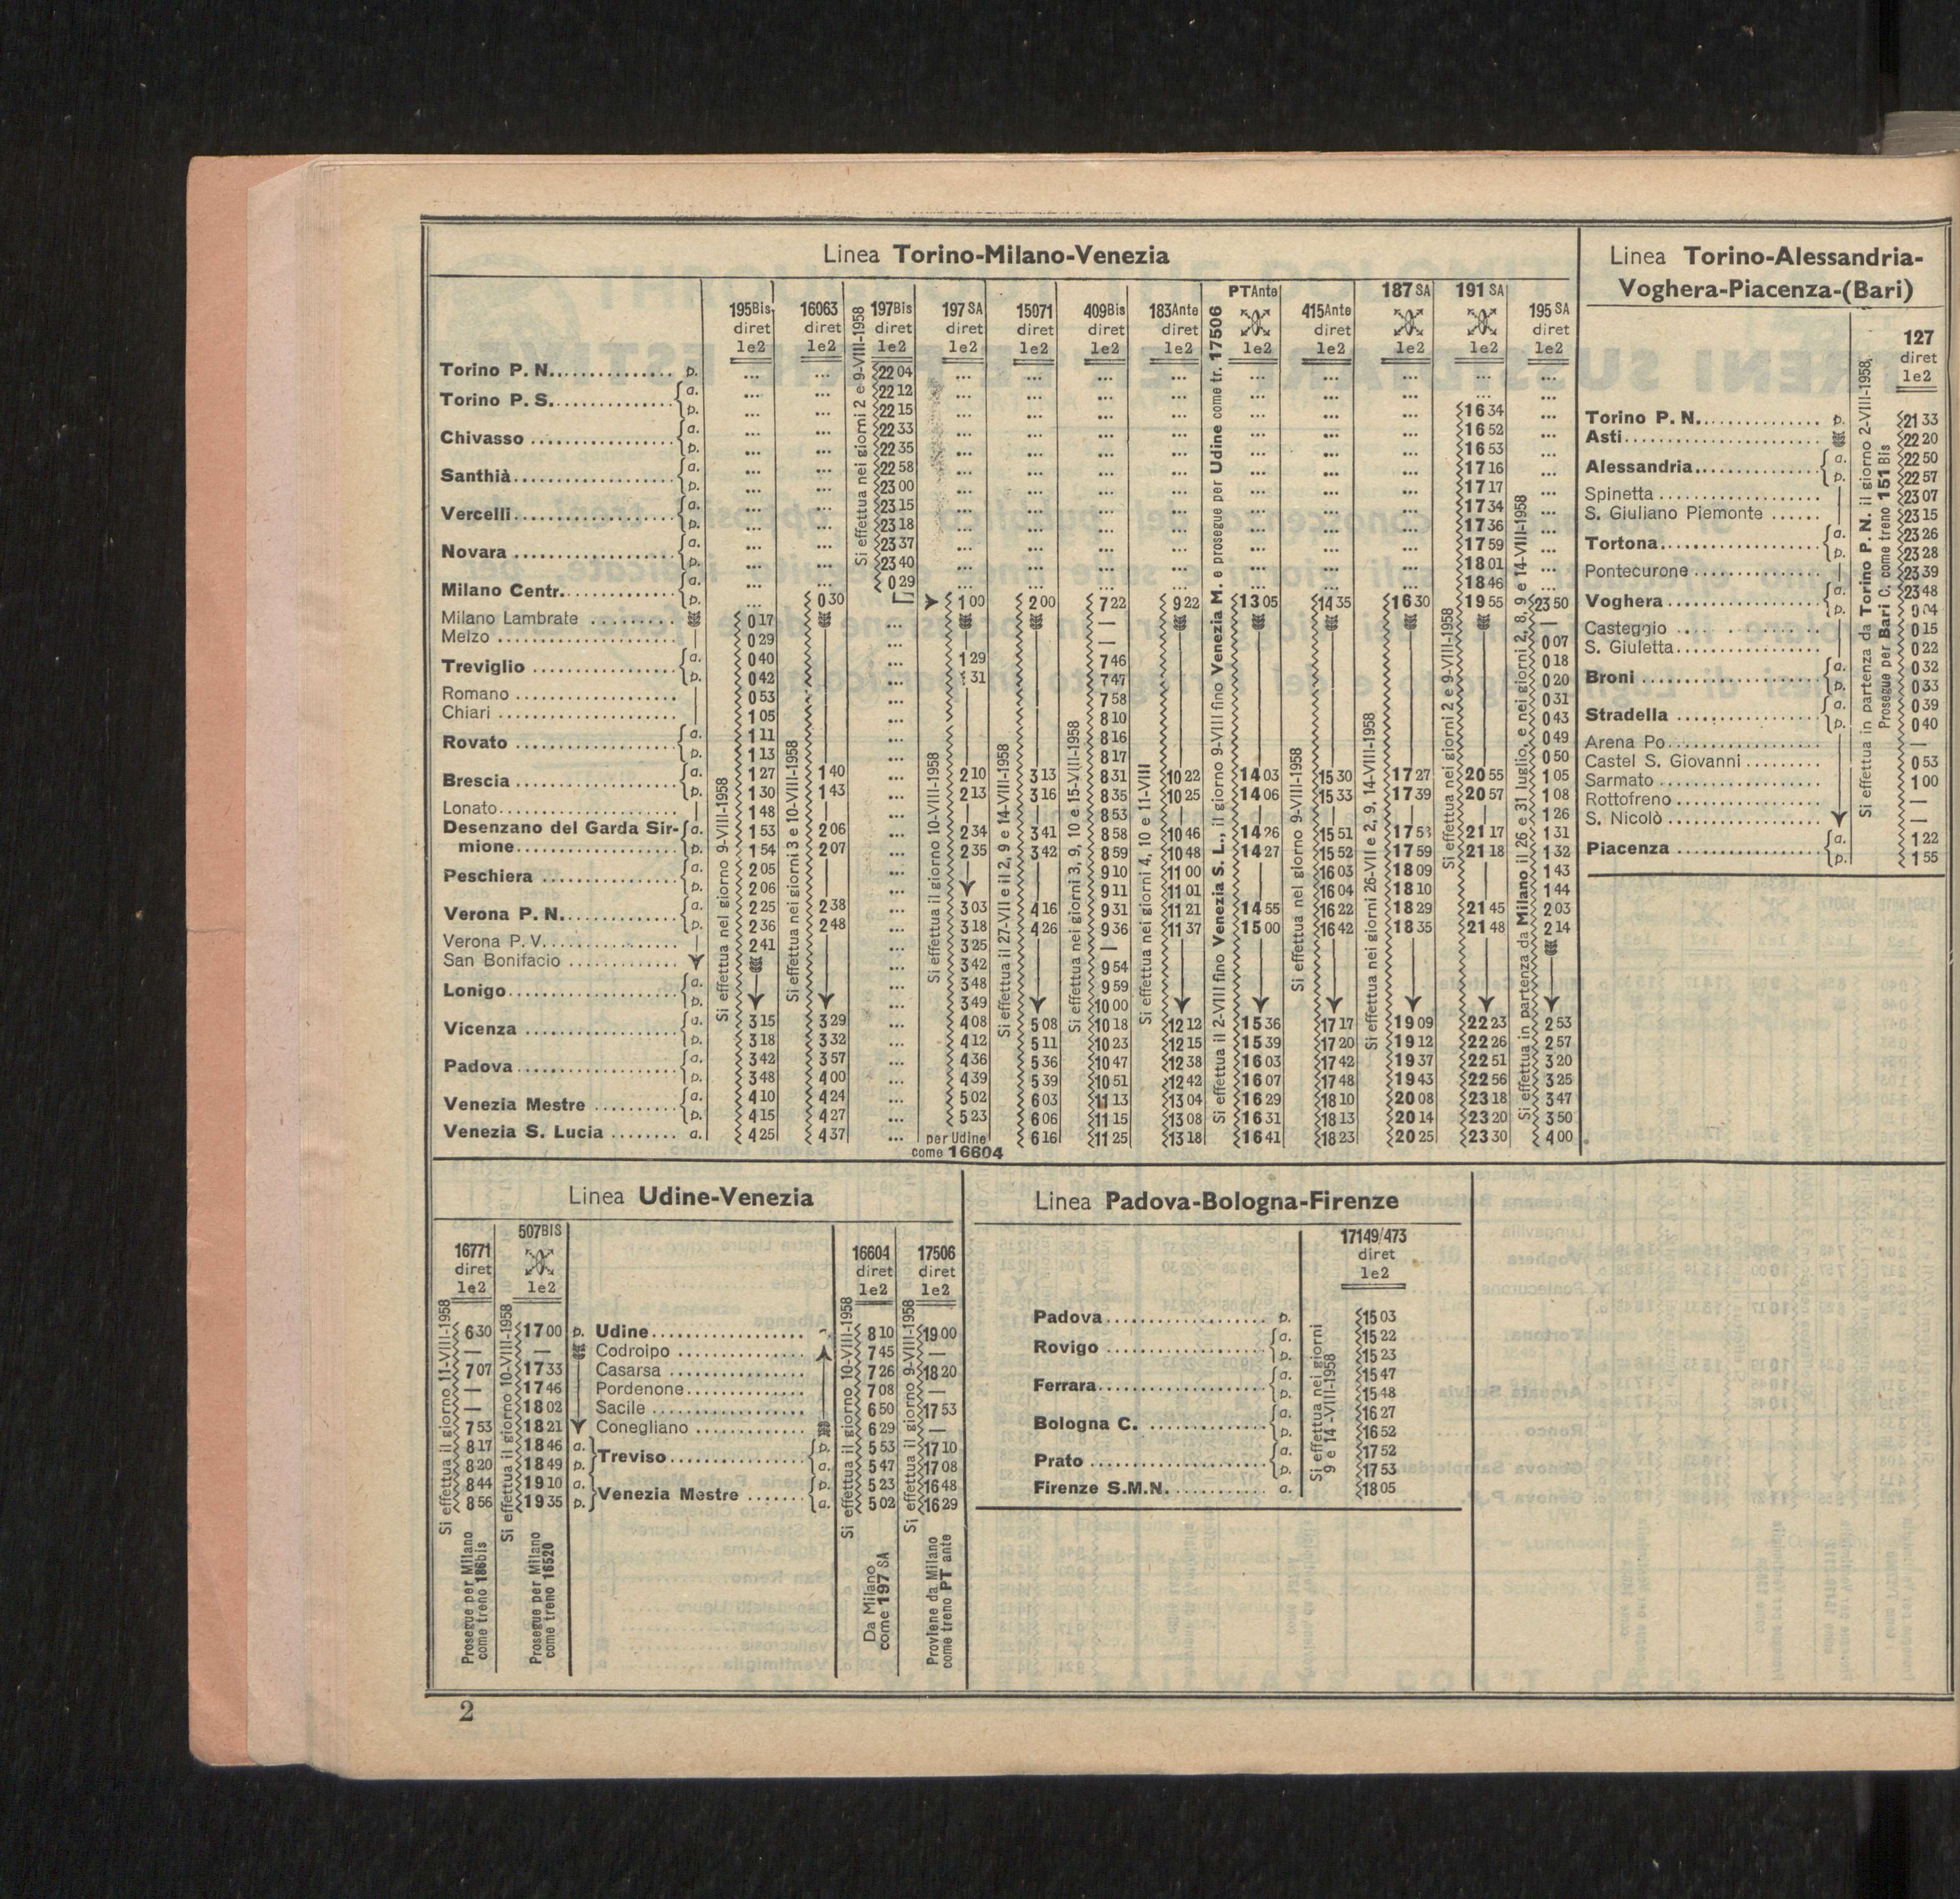 Linea Torino-Milano-Venezia
195Bis 16063 197Bis 197 SA 15071 409Bis 183Ante PTAnte 415Ante 187 SA 191 SA 195 SA
diret diret diret diret diret diret diret diret diret
1e2 1e2 1e2 1e2 1e2 1e2 1e2 1e2 1e2 1e2 1e2 1e2
Torino P. N. p. ... ... 22 04 ... ... ... ... ... ... ... ... ...
Torino P. S. a. ... ... 22 12 ... ... ... ... ... ... ... ... ...
p. ... ... 22 15 ... ... ... ... ... ... ... 16 34 ...
Chivasso a. ... ... 22 33 ... ... ... ... ... ... ... 16 52 ...
p. ... ... 22 35 ... ... ... ... ... ... ... 16 53 ...
Santhià a. ... ... 22 58 ... ... ... ... ... ... ... 17 16 ...
p. ... ... 23 00 ... ... ... ... ... ... ... 17 17 ...
Vercelli a. ... ... 23 15 ... ... ... ... ... ... ... 17 34 ...
p. ... ... 23 18 ... ... ... ... ... ... ... 17 36 ...
Novara a. ... ... 23 37 ... ... ... ... ... ... ... 17 59 ...
p. ... ... 23 40 ... ... ... ... ... ... ... 18 01 ...
Milano Centr. a. ... ... 0 29 ... ... ... ... ... ... ... 18 46 ...
p. ... 0 30 1 00 2 00 7 22 9 22 13 05 14 35 16 30 19 55 23 50
Milano Lambrate 0 17 ... — —
Melzo 0 29 ... — 0 07
Treviglio a. 0 40 ... 1 29 7 46 0 18
p. 0 42 ... 31 7 47 0 20
Romano 0 53 ... 7 58 0 31
Chiari 1 05 ... 8 10 0 43
Rovato a. 1 11 ... 8 16 0 49
p. 1 13 ... 8 17 0 50
Brescia a. 1 27 1 40 ... 2 10 3 13 8 31 10 22 14 03 15 30 17 27 20 55 1 05
p. 1 30 1 43 ... 2 13 3 16 8 35 10 25 14 06 15 33 17 39 20 57 1 08
Lonato 1 48 ... 8 53 1 26
Desenzano del Garda Sir- a. 1 53 2 06 ... 2 34 3 41 8 58 10 46 14 26 15 51 17 53 21 17 1 31
mione p. 1 54 2 07 ... 2 35 3 42 8 59 10 48 14 27 15 52 17 59 21 18 1 32
Peschiera a. 2 05 ... 9 10 11 00 16 03 18 09 1 43
p. 2 06 ... 9 11 11 01 16 04 18 10 1 44
Verona P. N. a. 2 25 2 38 ... 3 03 4 16 9 31 11 21 14 55 16 22 18 29 21 45 2 03
p. 2 36 2 48 ... 3 18 4 26 9 36 11 37 15 00 16 42 18 35 21 48 2 14
Verona P. V. 2 41 ... 3 25 —
San Bonifacio ... 3 42 9 54
Lonigo a. ... 3 48 9 59
p. ... 3 49 10 00
Vicenza a. 3 15 3 29 ... 4 08 5 08 10 18 12 12 15 36 17 17 19 09 22 23 2 53
p. 3 18 3 32 ... 4 12 5 11 10 23 12 15 15 39 17 20 19 12 22 26 2 57
Padova a. 3 42 3 57 ... 4 36 5 36 10 47 12 38 16 03 17 42 19 37 22 51 3 20
p. 3 48 4 00 ... 4 39 5 39 10 51 12 42 16 07 17 48 19 43 22 56 3 25
Venezia Mestre a. 4 10 4 24 ... 5 02 6 03 11 13 13 04 16 29 18 10 20 08 23 18 3 47
p. 4 15 4 27 ... 5 23 6 06 11 15 13 08 16 31 18 13 20 14 23 20 3 50
Venezia S. Lucia a. 4 25 4 37 ... per Udine 6 16 11 25 13 18 16 41 18 23 20 25 23 30 4 00
come 16604
Si effettua nel giorno 9-VIII-1958
Si effettua nei giorni 3 e 10-VIII-1958
Si effettua nei giorni 2 e 9-VIII-1958
Si effettua il giorno 10-VIII-1958
Si effettua il 27-VII e il 2, 9 e 14-VIII-1958
Si effettua nei giorni 3, 9, 10 e 15-VIII-1958
Si effettua nei giorni 4, 10 e 11-VIII
Si effettua il 2-VIII fino Venezia S. L., il giorno 9-VIII fino Venezia M. e prosegue per Udine come tr. 17506
Si effettua nel giorno 9-VIII-1958
Si effettua nei giorni 26-VII e 2, 9, 14-VIII-1958
Si effettua nei giorni 2 e 9-VIII-1958
Si effettua in partenza da Milano il 26 e 31 luglio, e nei giorni 2, 8, 9 e 14-VIII-1958
Linea Torino-Alessandria-
Voghera-Piacenza-(Bari)
127
diret
1e2
Torino P. N. p. 21 33
Asti 22 20
Alessandria a. 22 50
p. 22 57
Spinetta 23 07
S. Giuliano Piemonte 23 15
Tortona a. 23 26
p. 23 28
Pontecurone 23 39
Voghera a. 23 48
p. 0 04
Casteggio 0 15
S. Giuletta 0 22
Broni a. 0 32
p. 0 33
Stradella a. 0 39
p. 0 40
Arena Po —
Castel S. Giovanni 0 53
Sarmato 1 00
Rottofreno —
S. Nicolò —
Piacenza a. 1 22
p. 1 55
Si effettua in partenza da Torino P. N. il giorno 2-VIII-1958.
Prosegue per Bari C. come treno 151 Bis
Linea Udine-Venezia
16771 507BIS 16604 17506
diret diret diret
1e2 1e2 1e2 1e2
6 30 17 00 p. Udine 8 10 19 00
— — Codroipo 7 45 —
7 07 17 33 Casarsa 7 26 18 20
— 17 46 Pordenone 7 08 —
— 18 02 Sacile 6 50 17 53
7 53 18 21 Conegliano 6 29 —
8 17 18 46 a. Treviso p. 5 53 17 10
8 20 18 49 p. a. 5 47 17 08
8 44 19 10 a. Venezia Mestre p. 5 23 16 48
8 56 19 35 p. a. 5 02 16 29
Si effettua il giorno 11-VIII-1958
Prosegue per Milano
come treno 186bis
Si effettua il giorno 10-VIII-1958
Prosegue per Milano
come treno 16520
Si effettua il giorno 10-VIII-1958
Da Milano
come 197 SA
Si effettua il giorno 9-VIII-1958
Proviene da Milano
come treno PT ante
Linea Padova-Bologna-Firenze
17149/473
diret
1e2
Padova p. 15 03
Rovigo a. 15 22
p. 15 23
Ferrara a. 15 47
p. 15 48
Bologna C. a. 16 27
p. 16 52
Prato a. 17 52
p. 17 53
Firenze S.M.N. a. 18 05
Si effettua nei giorni
9 e 14-VIII-1958
2